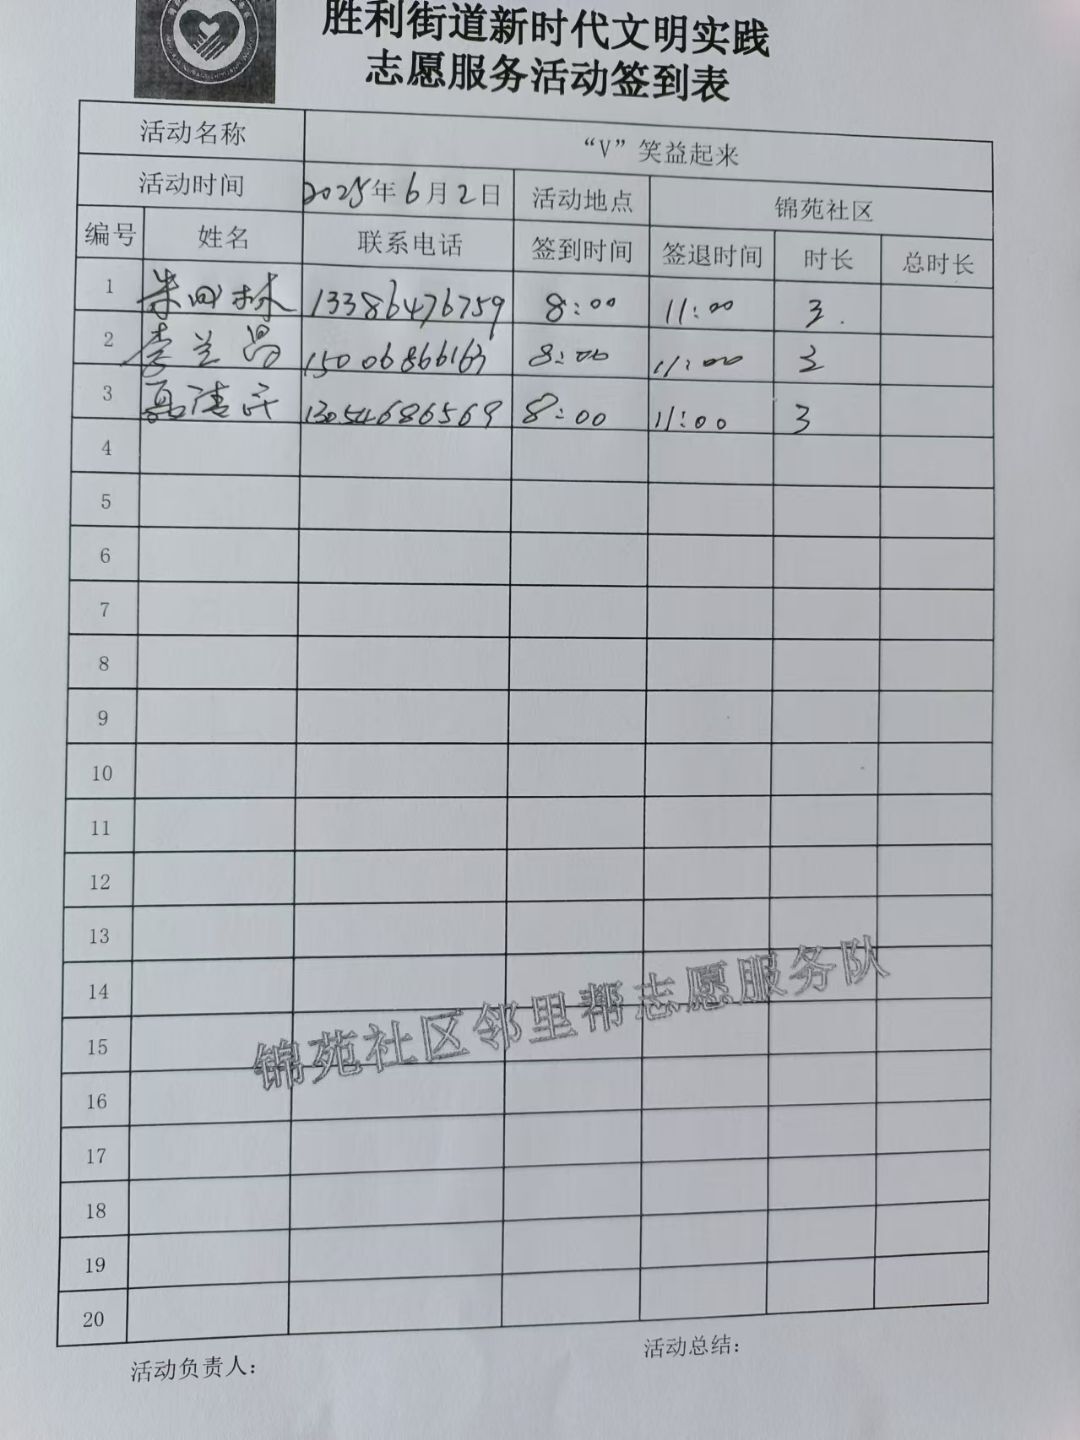 胜利街道新时代文明实践
志愿服务活动签到表
活动名称 “V”笑益起来
活动时间 2025年6月2日 活动地点 锦苑社区
编号 姓名 联系电话 签到时间 签退时间 时长 总时长
1 朱田林 13386476759 8:00 11:00 3
2 李兰昌 15006866163 8:00 11:00 3
3 聂清民 13054686569 8:00 11:00 3
4
5
6
7
8
9
10
11
12
13
14
15
16
17
18
19
20
锦苑社区邻里帮志愿服务队
活动负责人: 活动总结: